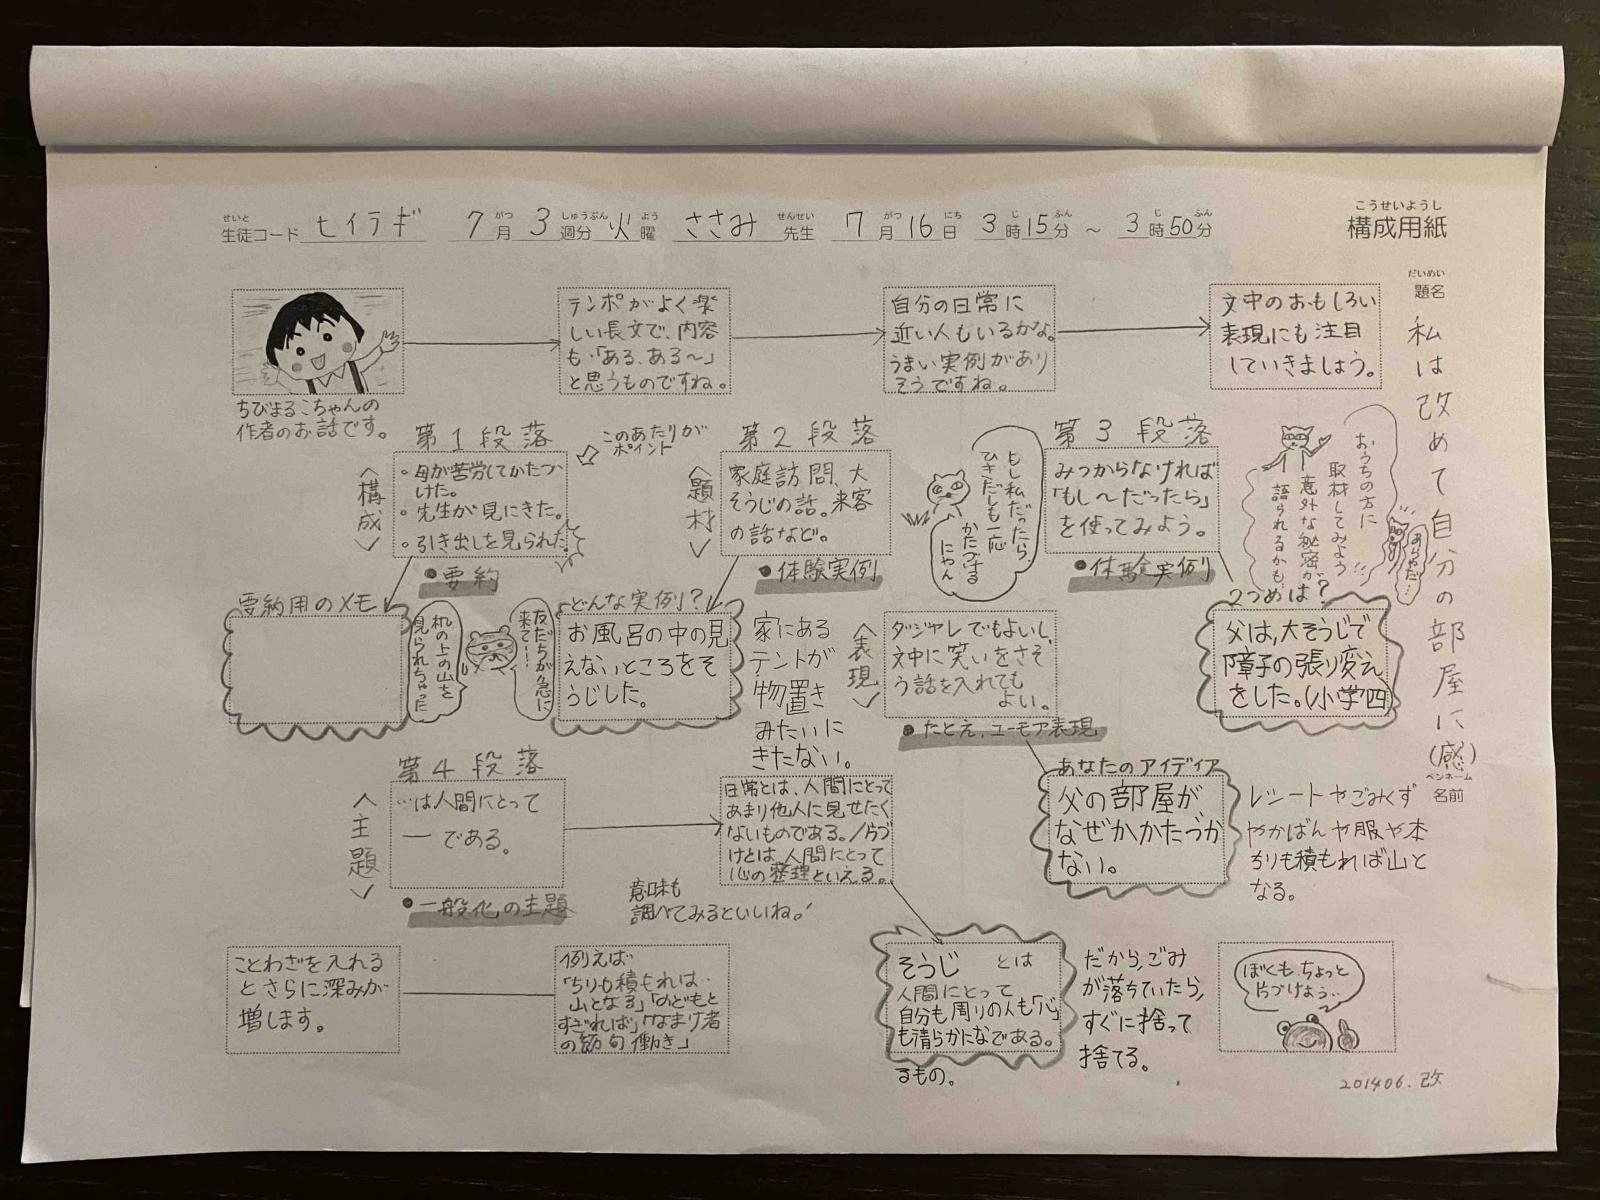 せいと がつ しゅうぶん よう せんせい がつ にち じ ふん じ ふん
生徒コード セイラギ 7月 3週分 火曜 ささみ先生 7月16日 3時15分 ～ 3時50分
こうせいようし
構成用紙
だいめい
題名
私は改めて自分の部屋に(感)
ペンネーム
名前
ちびまるこちゃんの
作者のお話です。
テンポがよく楽
しい長文で、内容
も「ある、ある～」
と思うものですね。
自分の日常に
近い人もいるかな。
うまい実例があり
そうですね。
文中のおもしろい
表現にも注目
していきましょう。
第1段落
このあたりが
ポイント
<構成>
・母が苦労してかたづ
けた。
・先生が見にきた。
・引き出しを見られた。
●要約
要納用のメモ
机の上の山を
見られちゃった
第2段落
<題材>
家庭訪問、大
そうじの話。来客
の話など。
●体験実例
どんな実例？
友だちが急に
来て…
お風呂の中の見
えないところをそ
うじした。
家にある
テントが
物置き
みたいに
きたない。
第3段落
もし私だったら、
ひきだしも一応
かたづける
にゃん
みつからなければ
「もし～だったら」
を使ってみよう。
●体験実例
おうちの方に
取材してみよう!!
意外な秘密が
語られるかも…
あらやだ…
2つめは？
父は、大そうじで
障子の張り変え
をした。(小学四
<表現>
ダジャレでもよいし、
文中に笑いをさそ
う話を入れても
よい。
●たとえ、ユーモア表現
あなたのアイディア
父の部屋が
なぜかかたづか
ない。
レシートやごみくず
やかばんや服や本
ちりも積もれば山と
なる。
第4段落
<主題>
…は人間にとって
― である。
●一般化の主題
日常とは、人間にとって
あまり他人に見せたく
ないものである。/片づ
けとは、人間にとって
心の整理といえる。
意味も
調べてみるといいね。!
ことわざを入れる
とさらに深みが
増します。
例えば…
「ちりも積もれば…
山となる」「のどもと
すぎれば」「なまけ者
の節句働き」
そうじ とは
人間にとって
自分も周りの人も「心」
も清らかになである。
るもの。
だから、ごみ
が落ちていたら、
すぐに捨って
捨てる。
ぼくも、ちょっと
片づけよう…
201406.改